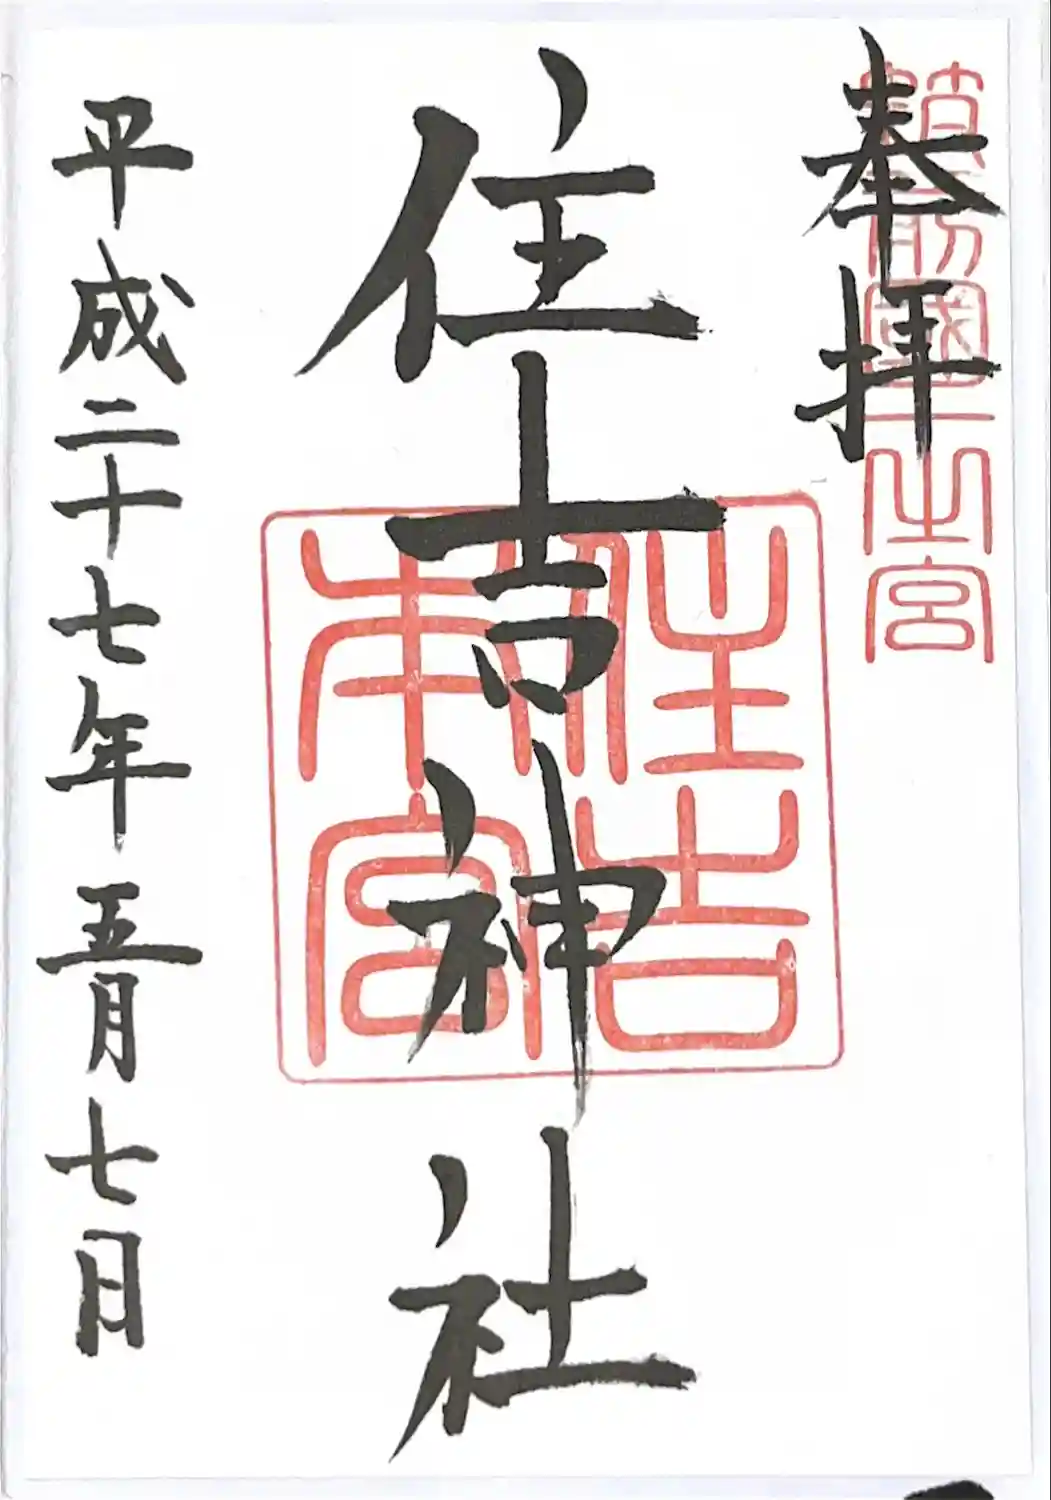 奉拝
筑前國一之宮
住吉神社
住吉本宮
平成二十七年五月七日